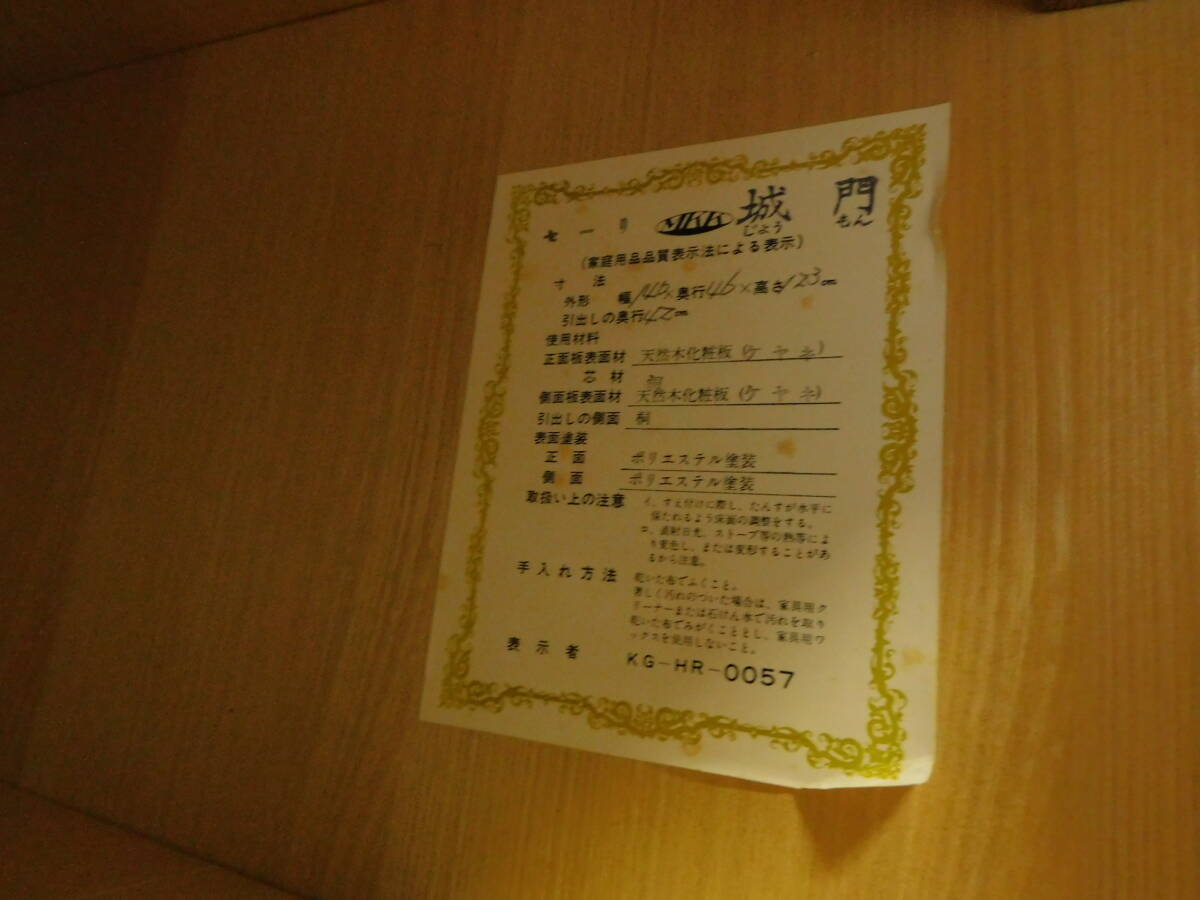 セーリ MKK 城門
じょう もん
(家庭用品品質表示法による表示)
寸法
外形 幅 × 奥行46×高さ123cm
引出しの奥行42cm
使用材料
正面板表面材 天然木化粧板(ケヤキ)
芯材 桐
側面板表面材 天然木化粧板(ケヤキ)
引出しの側面 桐
表面塗装
正面 ポリエステル塗装
側面 ポリエステル塗装
取扱い上の注意 イ、すえ付けに際し、たんすが水平に
保たれるよう床面の調整をする。
ロ、直射日光、ストーブ等の熱等によ
り変色し、または変形することがあ
るから注意。
手入れ方法 乾いた布でふくこと。
著しく汚れのついた場合は、家具用ク
リーナーまたは石けん水で汚れを取り
乾いた布でみがくこととし、家具用ワ
ックスを使用しないこと。
表示者 KG-HR-0057